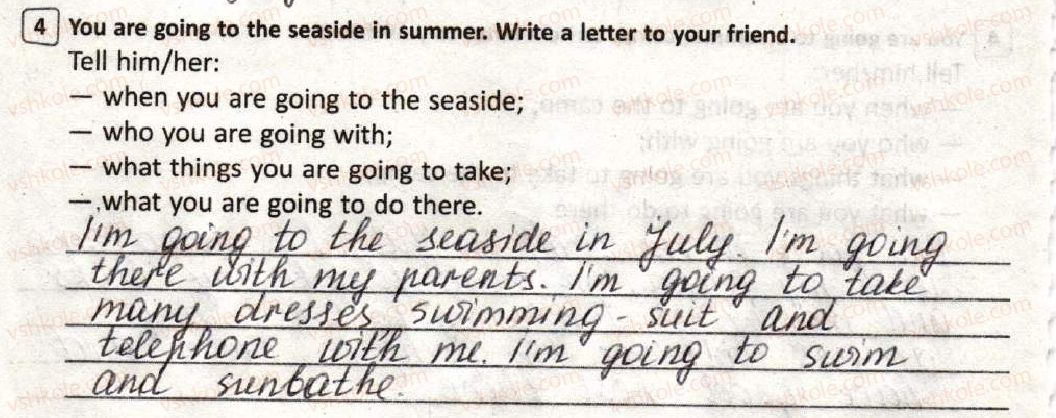 4 You are going to the seaside in summer. Write a letter to your friend.
Tell him/her:
— when you are going to the seaside;
— who you are going with;
— what things you are going to take;
— what you are going to do there.
I'm going to the seaside in July. I'm going
there with my parents. I'm going to take
many dresses, swimming-suit and
telephone with me. I'm going to swim
and sunbathe.